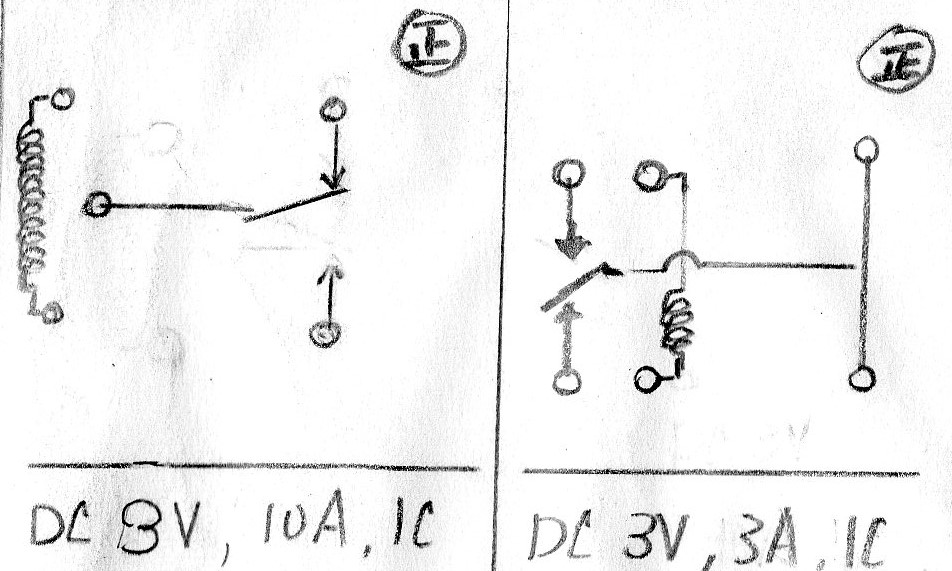 正
正
DC 10A, 1C
DC 3V, 3A, 1C